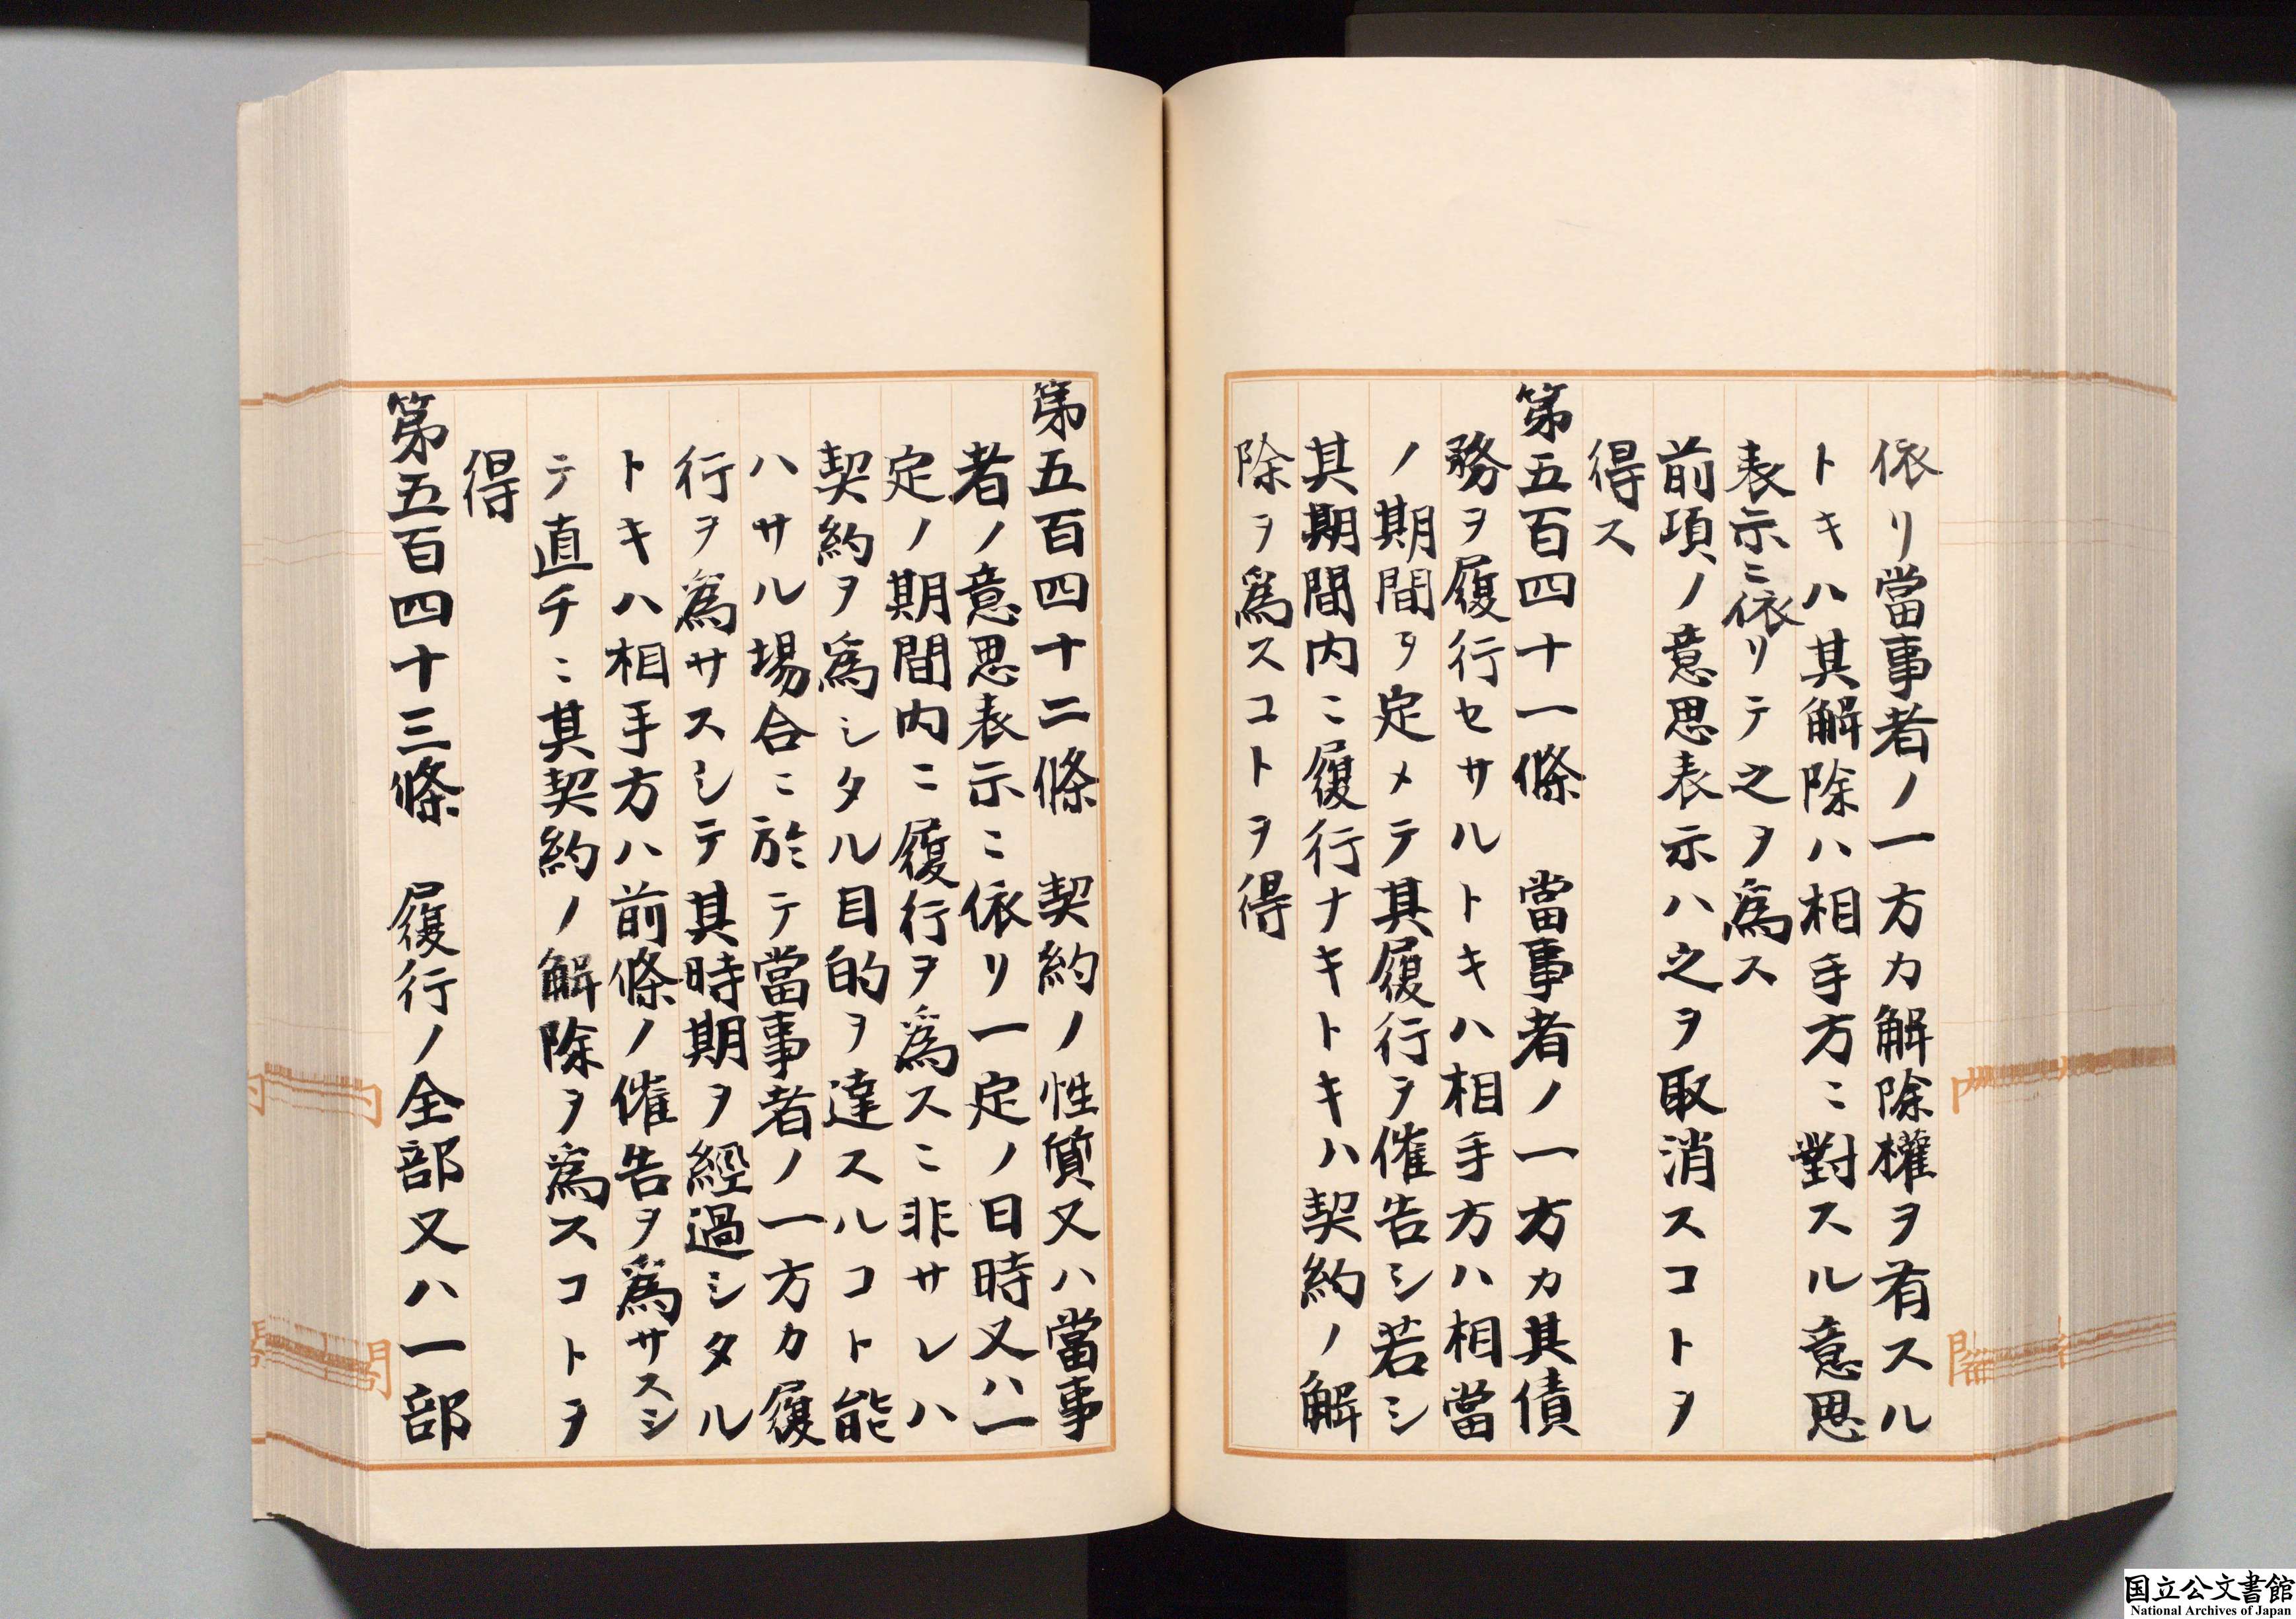 依リ當事者ノ一方カ解除權ヲ有スル
トキハ其解除ハ相手方ニ對スル意思
表示ニ依リテ之ヲ爲ス
前項ノ意思表示ハ之ヲ取消スコトヲ
得ス
第五百四十一條　當事者ノ一方カ其債
務ヲ履行セサルトキハ相手方ハ相當
ノ期間ヲ定メテ其履行ヲ催告シ若シ
其期間内ニ履行ナキトキハ契約ノ解
除ヲ爲スコトヲ得
第五百四十二條　契約ノ性質又ハ當事
者ノ意思表示ニ依リ一定ノ日時又ハ一
定ノ期間内ニ履行ヲ爲スニ非サレハ
契約ヲ爲シタル目的ヲ達スルコト能
ハサル場合ニ於テ當事者ノ一方カ履
行ヲ爲サスシテ其時期ヲ經過シタル
トキハ相手方ハ前條ノ催告ヲ爲サスシ
テ直チニ其契約ノ解除ヲ爲スコトヲ
得
第五百四十三條　履行ノ全部又ハ一部
国立公文書館
National Archives of Japan